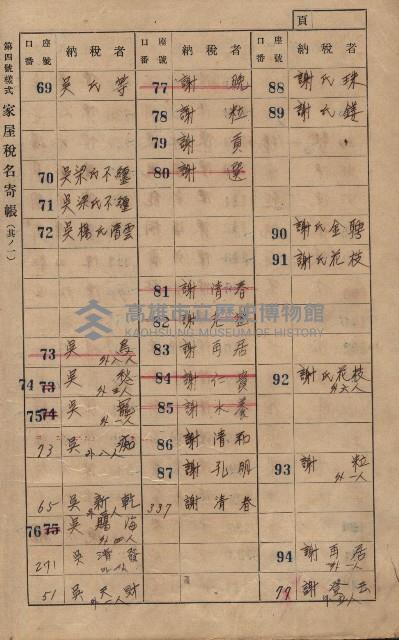 頁
第四號樣式 家屋稅名寄帳(其ノ一)
口座番號 納稅者
69 吳氏等
70 吳梁氏不纏
71 吳梁氏不纏
72 吳楊氏清雲
73 吳 為 外八人
74 73 吳 外五人
75 74 吳 龍 外一人
73 吳 外八人
65 吳新乾
76 75 吳賜海 外四人
271 吳清發
51 吳天財 外一人
口座番號 納稅者
77 謝
78 謝 粒
79 謝 貢
80 謝 選
81 謝清春
82 謝光
83 謝再居
84 謝仁賓
85 謝水養
86 謝清和
87 謝孔明
337 謝清春
口座番號 納稅者
88 謝氏珠
89 謝氏
90 謝氏金騁
91 謝氏花枝
92 謝氏花枝 外六人
93 謝 粒 外一人
94 謝再居 外一人
77 謝登云
高雄市立歷史博物館
KAOHSIUNG MUSEUM OF HISTORY